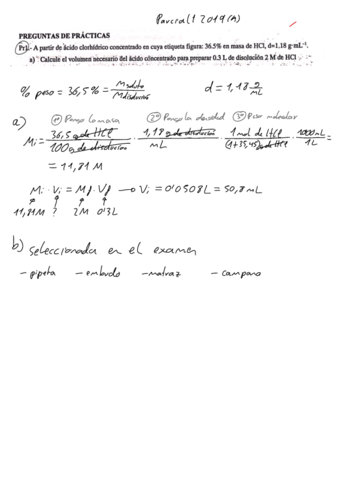 Parcial 1 2019 (A)
PREGUNTAS DE PRÁCTICAS
Pr1.- A partir de ácido clorhídrico concentrado en cuya etiqueta figura: 36.5% en masa de HCl, d=1.18 g·mL⁻¹.
a) Calcule el volumen necesario del ácido concentrado para preparar 0.3 L de disolución 2 M de HCl
% peso = 36,5% = Msoluto / Mdisolución d = 1,18 g/mL
a) 1º Pongo la masa 2º Pongo la densidad 3º Peso molecular
Mi = 36,5 g de HCl / 100 g de disolución · 1,18 g de disolución / mL · 1 mol de HCl / (1+35,45) g de HCl · 1000 mL / 1 L =
= 11,81 M
Mi · Vi = Mf · Vf → Vi = 0'0508 L = 50,8 mL
11,81M ? 2M 0'3L
b) seleccionada en el examen
- pipeta - embudo - matraz - campana